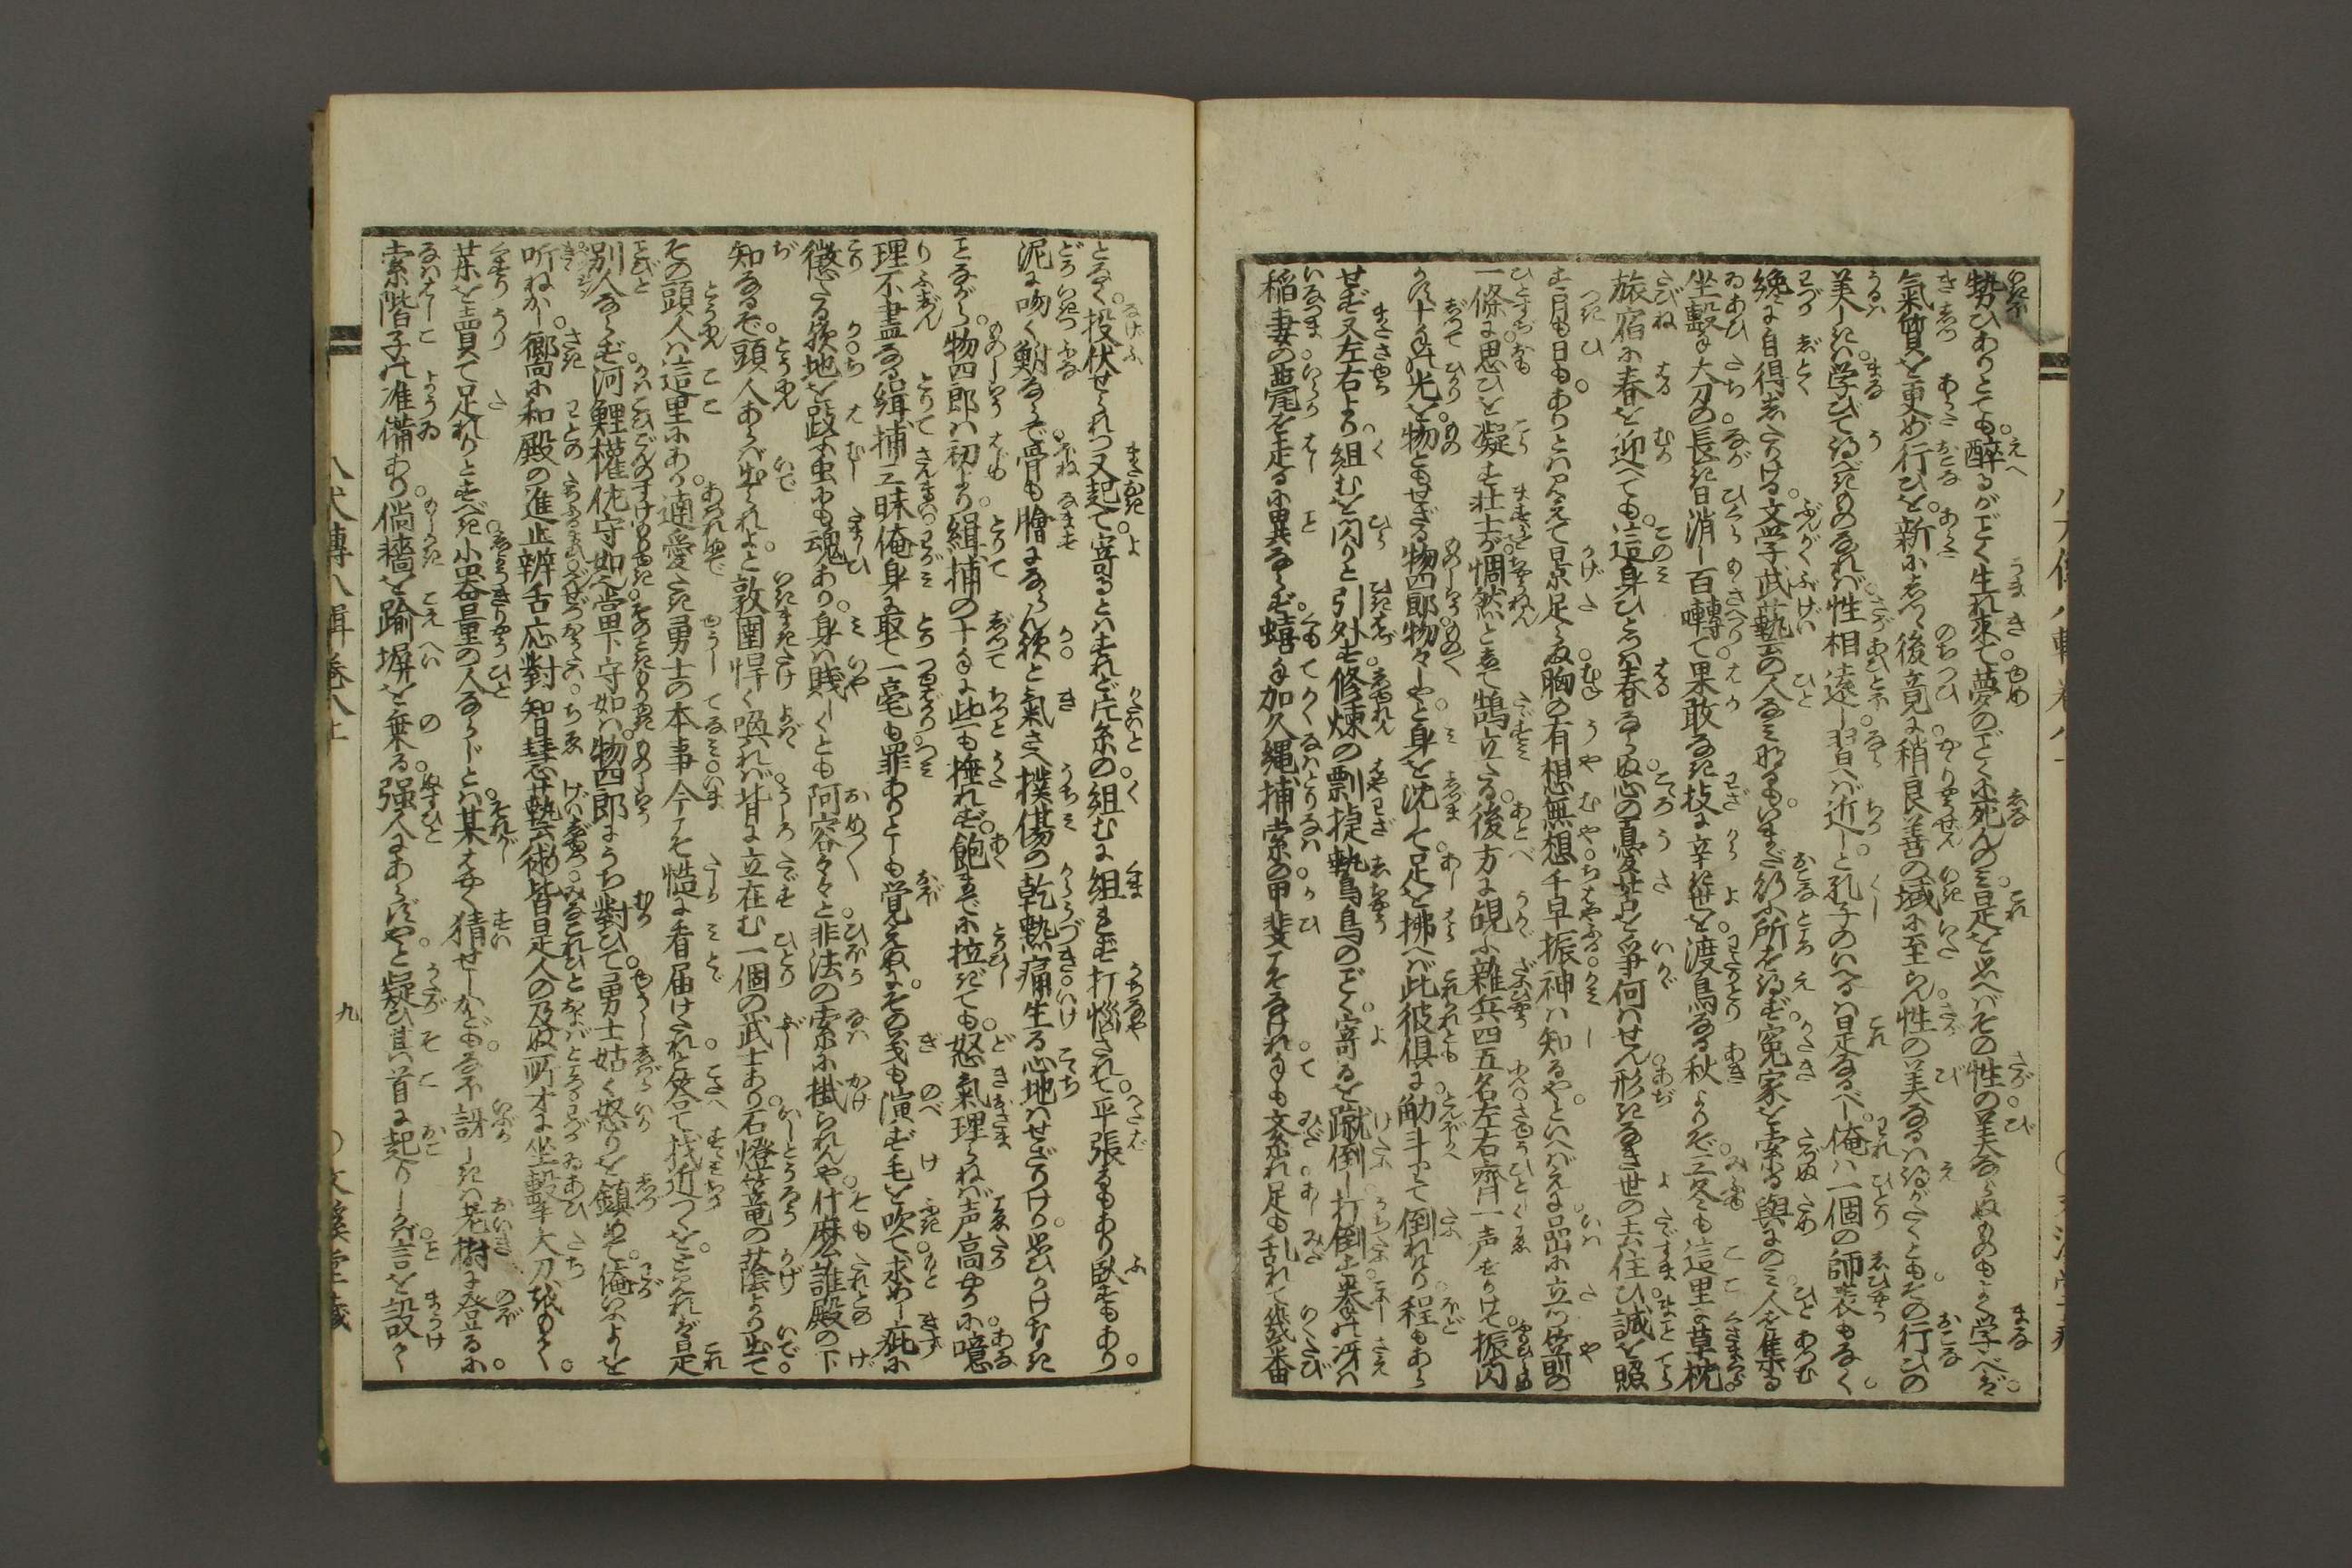 勢ひありとても。醉るがごとく生れ来て。夢のごとくに死んのミ。是を思へバその性の美ならぬものもよく学べバ。
氣質を更め行ひを。新にしつゝ後竟に。稍良善の域に至らん。性の美なるハ得がたくとも。その行ひの
美しきハ。学びて得べきものなれバ。性相遠し。習へバ近しと。孔子のいへるハ是なるべし。俺ハ一個の師表もなく。
纔に自得したりける。文学武藝の人なミなるも。いまだ行ふ所を得ず。寃家を索る與にのミ。人を集る
坐撃大刀の。長き日消し百囀。果敢なき技に辛き世を。渡鳥なる秋よりぞ。三冬も這里に草枕。
旅宿に春を迎へても。這身ひとつハ春ならぬ。心の憂苦を爭何ハせん。形きなき世の立住ひ。誠を照
す月も日も。ありとハ見えて景足らぬ。胸の有想無想千早振。神ハ知るや。といへばえに。品に立つ箭の
一條に。思ひを凝す壮士が。惆然と立て鵠立たる。後方に覘ふ雑兵四五名。左右齊一声をかけて。振閃
かす十手の光を。物ともせざる物四郎。物々しやと身を沈して。足を拂へバ此彼倶に。觔斗て倒れけり。程もあら
せず又左右より。組むを閃りと引外す。修煉の剽捷鷙鳥のごとく。寄るを蹴倒し打倒す。拳の冴ハ
稲妻の。電光を走るに異ならず。蟢手加久縄捕索の。甲斐こそなけれ手も紊れ。足も乱れて幾番
となく。投伏せられつ又起て。寄るとハすれど片糸の。組むに組まれず打惱されて。平張るもあり臥すもあり。
泥に吻く鮒ならで。骨も膾にならん欤と。氣さへ撲傷の乾㷀痛。生る心地ハせざりけり。思ひかけなき
ことながら。物四郎ハ初より。緝捕の十手に些も撞れず。飽までに拉ぎても。怒氣理らねバ声高やかに。噫
理不盡なる緝捕三昧。俺身に取て一毫も。罪ありとしも覚えぬに。その義も演ず毛を吹て。求めし疵に
懲たる欤。地を跂ふ虫にも魂あり。身ハ賤しくとも阿容々々と。非法の索に掛られんや。什麽誰殿の下
知なるぞ。頭人あらバ出られよ。と敦圉悍く喚れバ。背に立在む一個の武士あり。石燈篭の蔭より出て。
その頭人ハ這里にあり。遖愛たき勇士の本事。今こそ慥に看届けたれと答て找近つくを。とみれバ是
別人ならず。河鯉権佐守如。當下守如ハ。物四郎にうち對ひて。勇士姑く怒りを鎮めて。俺いふよしを
听ねかし。嚮に和殿の進止辨舌。応對智慧藝術。皆是人の及ぬ所。わづかに坐撃大刀試ものとく。
薬を賣て足れりとすべき。小器量の人ならじとハ。某はやく猜せしかども。なほ訝しきハ老樹に登るに。
索階子の准備あり。倘墻を踰塀を乗る。強人にあらずやと。疑ひ其首に起りしかバ。言を設く
八犬傳八輯巻八上
九
〇文溪堂藏